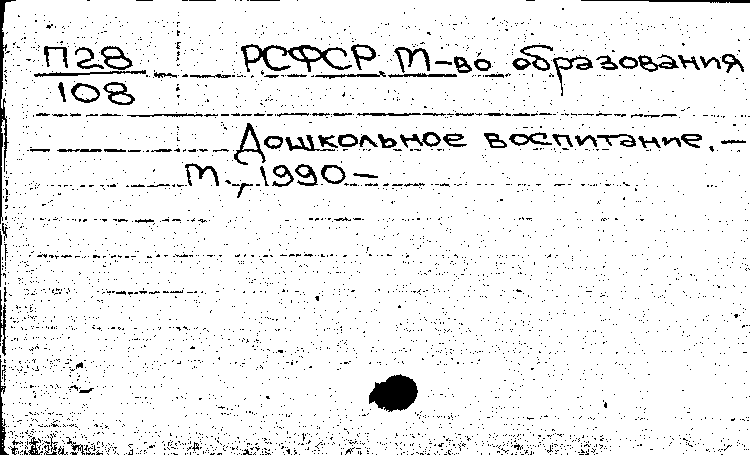 П28 РСФСР. М-во образования
108
Дошкольное воспитание. –
М., 1990 –